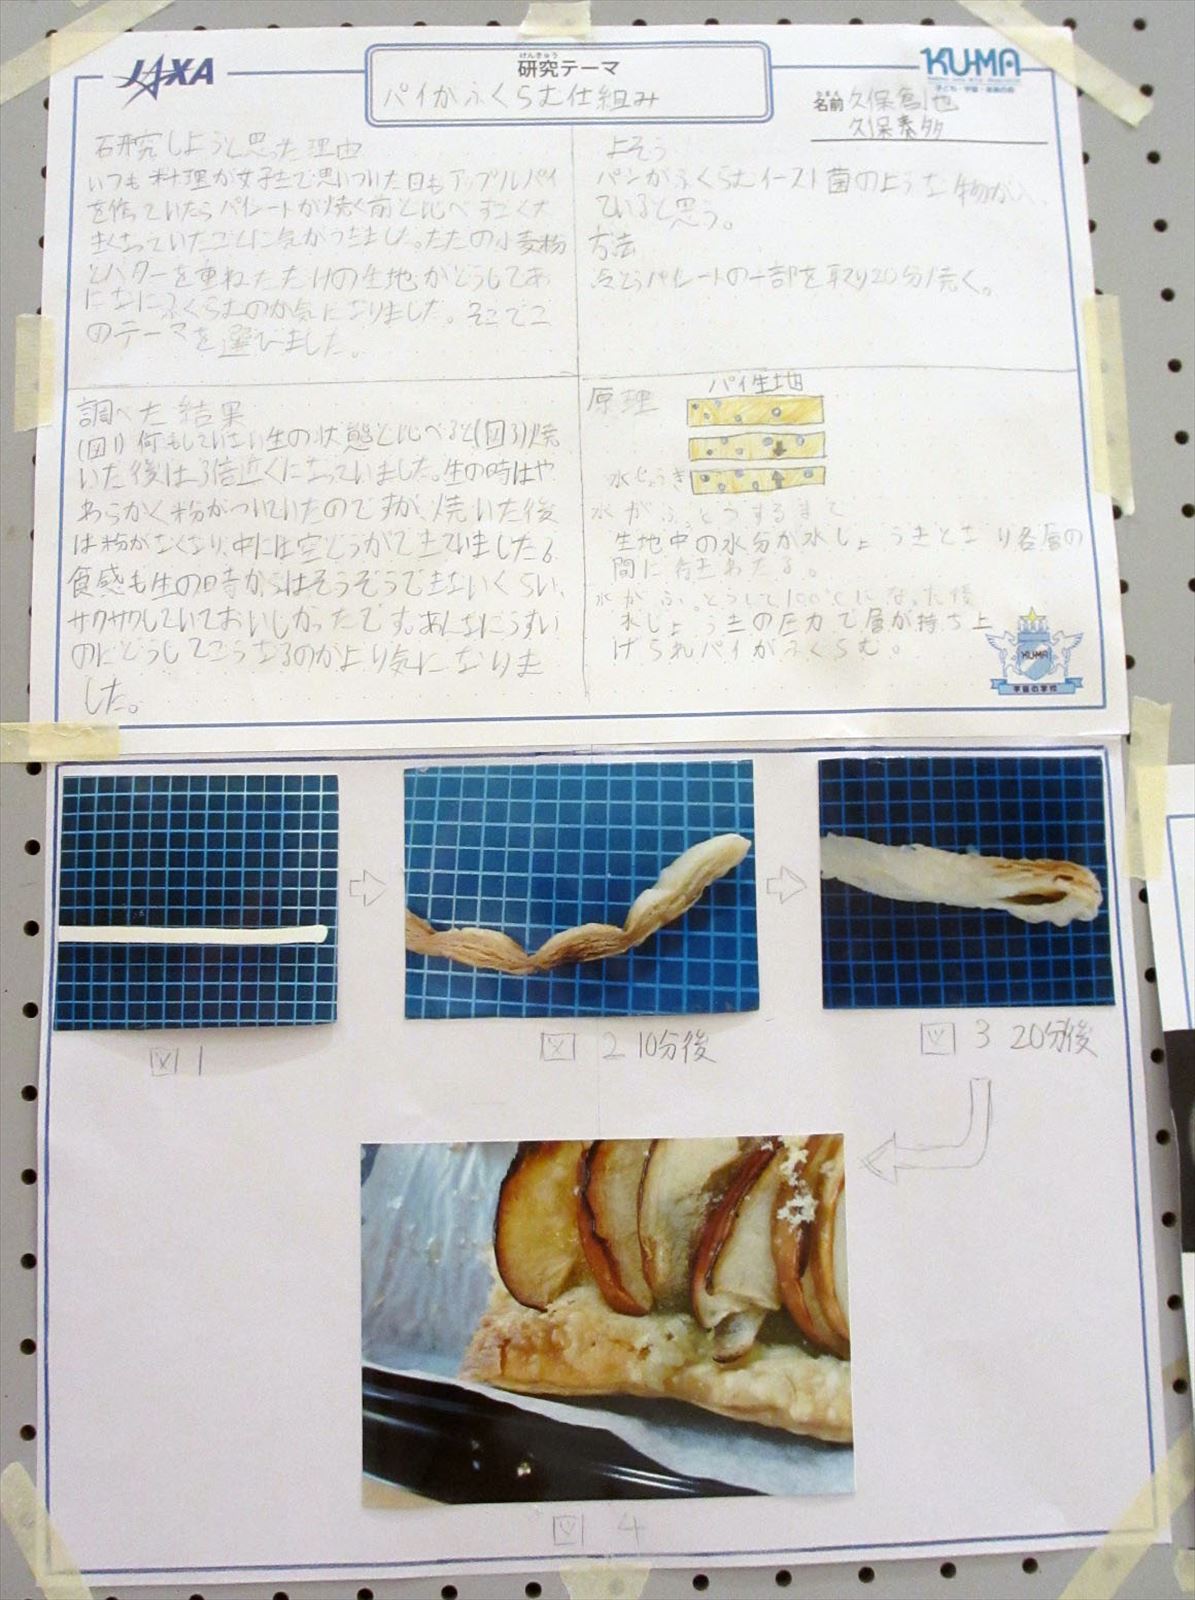 JAXA
けんきゅう
研究テーマ
パイがふくらむ仕組み
KU-MA
子ども・宇宙・未来の会
なまえ
名前 久保創也
久保奏多
研究しようと思った理由
いつも料理が女子きで思いついた日もアップルパイ
を作っていたらパイシートが焼く前と比べすごく大
きくなっていたことに気がつきました。ただの小麦粉
とバターを重ねただけの生地がどうしてあ
んなにふくらむのか気になりました。そこでこ
のテーマを選びました。
よそう
パンがふくらむイースト菌のような物が入っ
ていると思う。
方法
冷とうパイシートの一部を取り20分焼く。
調べた結果
(図1)何もしていない生の状態と比べると(図3)焼
いた後は3倍近くになっていました。生の時はや
わらかく粉がついていたのですが、焼いた後
は粉がなくなり、中には空どうができていました。
食感も生の時からはそうぞうできないくらい、
サクサクしていておいしかったです。あんなにうすい
のにどうしてこうなるのかより気になりま
した。
原理
パイ生地
水じょうき
水がふっとうするまで
生地中の水分が水じょうきとなり各層の
間に行きわたる。
水がふっとうして100℃になった後
水じょうきの圧力で層が持ち上
げられパイがふくらむ。
KU-MA
宇宙の学校
図1
図2 10分後
図3 20分後
図4